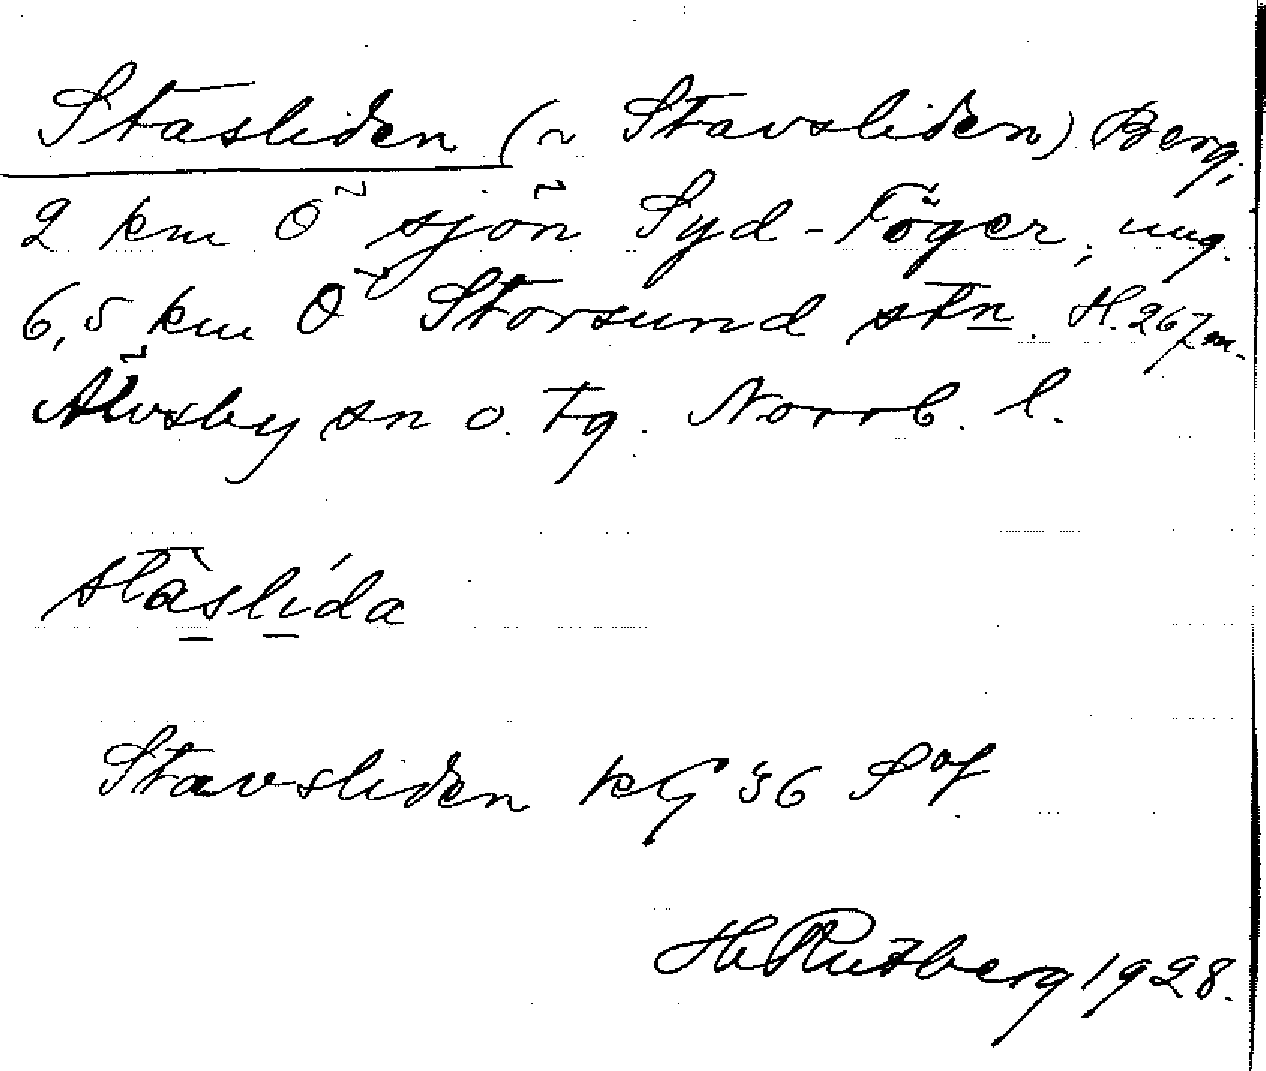 Stasliden (~ Stavsliden) Berg,
2 km Ö sjön Syd-Töger, ung.
6,5 km Ö Storsund stn. H. 267 m.
Älvsby sn o. tg. Norrb. l.
stàslída
Stavsliden kG 36 S
H Rutberg 1928.